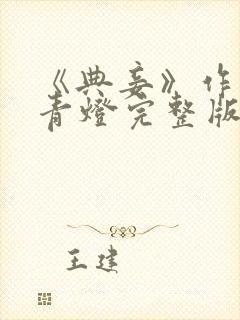 《典妾》作
青燈完整版
王建